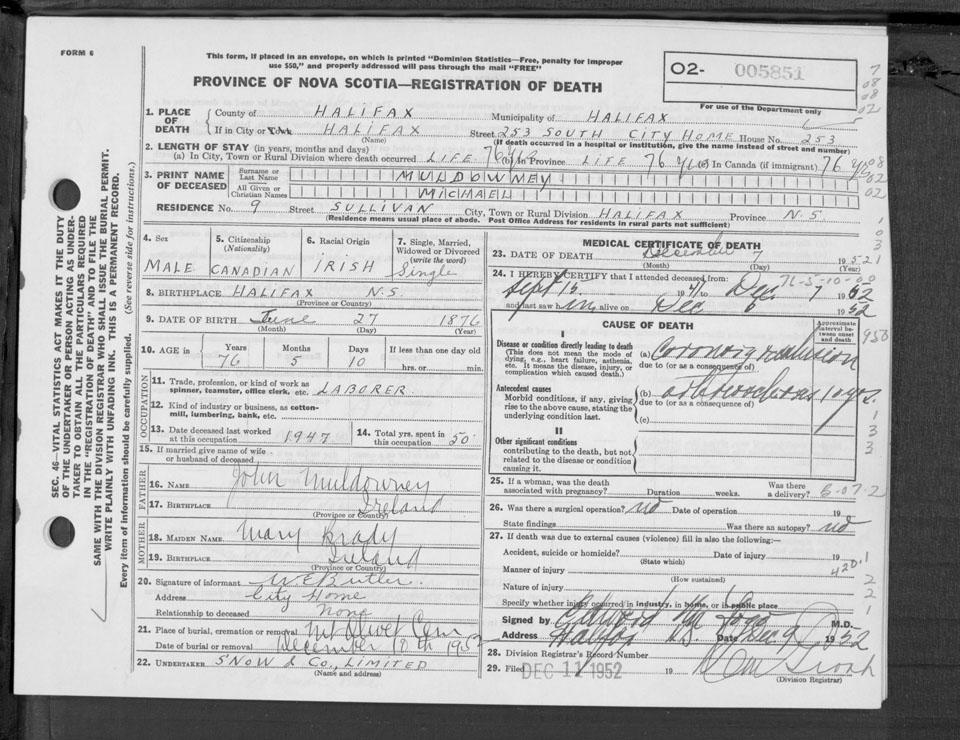 FORM 6
This form, if placed in an envelope, on which is printed "Dominion Statistics—Free, penalty for improper
use $50," and properly addressed will pass through the mail "FREE"
PROVINCE OF NOVA SCOTIA—REGISTRATION OF DEATH
02- 005851
For use of the Department only
1. PLACE OF DEATH { County of HALIFAX Municipality of HALIFAX
If in City or Town HALIFAX Street 253 SOUTH CITY HOME House No. 253
(Name) (If death occurred in a hospital or institution, give the name instead of street and number)
2. LENGTH OF STAY (in years, months and days)
(a) In City, Town or Rural Division where death occurred LIFE 76 (b) in Province LIFE 76 (c) In Canada (if immigrant) 76
3. PRINT NAME OF DECEASED { Surname or Last Name MULDOWNEY
All Given or Christian Names MICHAEL
RESIDENCE No. 9 Street SULLIVAN City, Town or Rural Division HALIFAX Province N.S.
(Residence means usual place of abode. Post Office Address for residents in rural parts not sufficient)
4. Sex
MALE
5. Citizenship
(Nationality)
CANADIAN
6. Racial Origin
IRISH
7. Single, Married,
Widowed or Divorced
(write the word)
Single
8. BIRTHPLACE HALIFAX N.S.
(Province or Country)
9. DATE OF BIRTH June 27 1876
(Month) (Day) (Year)
10. AGE in { Years 76 Months 5 Days 10 If less than one day old
hrs. or min.
OCCUPATION
11. Trade, profession, or kind of work as
spinner, teamster, office clerk, etc. LABORER
12. Kind of industry or business, as cotton-
mill, lumbering, bank, etc.
13. Date deceased last worked
at this occupation 1947
14. Total yrs. spent in
this occupation 50
15. If married give name of wife
or husband of deceased
FATHER
16. NAME John Muldowney
17. BIRTHPLACE Ireland
(Province or Country)
MOTHER
18. MAIDEN NAME Mary Brady
19. BIRTHPLACE Ireland
(Province or Country)
20. Signature of informant W. E. Butler.
Address City Home
Relationship to deceased None
21. Place of burial, cremation or removal Mt Olivet Cem
Date of burial or removal December 10th 1952
22. UNDERTAKER SNOW & CO., LIMITED
(Name and address)
MEDICAL CERTIFICATE OF DEATH
23. DATE OF DEATH December 7 1952
(Month) (Day) (Year)
24. I HEREBY CERTIFY that I attended deceased from:
Sept 15 1947 to Dec 7 1952
and last saw him alive on Dec 6 1952
CAUSE OF DEATH
Approximate
interval be-
tween onset
and death
I
Disease or condition directly leading to death
(This does not mean the mode of
dying, e.g., heart failure, asthenia,
etc. It means the disease, injury, or
complication which caused death.)
(a) Coronary occlusion
due to (or as a consequence of)
Antecedent causes
Morbid conditions, if any, giving
rise to the above cause, stating the
underlying condition last.
(b) 10 yrs.
due to (or as a consequence of)
(c)
II
Other significant conditions
contributing to the death, but not
related to the disease or condition
causing it.
25. If a woman, was the death
associated with pregnancy? Duration weeks. Was there
a delivery?
26. Was there a surgical operation? no Date of operation 19
State findings Was there an autopsy? no
27. If death was due to external causes (violence) fill in also the following:—
Accident, suicide or homicide? Date of injury 19
(State which)
Manner of injury
(How sustained)
Nature of injury
Specify whether injury occurred in industry, in home, or in public place
Signed by Edward M.D.
Address Halifax N.S. Date Dec 9 1952
28. Division Registrar's Record Number
29. Filed DEC 11 1952
(Division Registrar)
SEC. 46—VITAL STATISTICS ACT MAKES IT THE DUTY
OF THE UNDERTAKER OR PERSON ACTING AS UNDER-
TAKER TO OBTAIN ALL THE PARTICULARS REQUIRED
IN THE "REGISTRATION OF DEATH" AND TO FILE THE
SAME WITH THE DIVISION REGISTRAR WHO SHALL ISSUE THE BURIAL PERMIT.
WRITE PLAINLY WITH UNFADING INK. THIS IS A PERMANENT RECORD.
Every item of information should be carefully supplied. (See reverse side for instructions.)